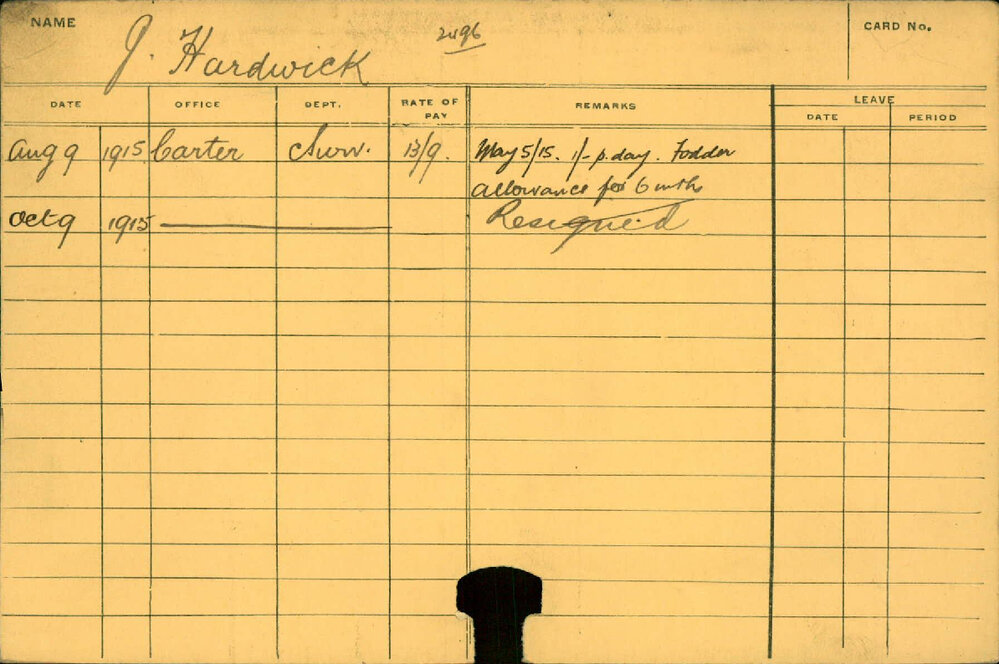 NAME J. Hardwick 2496 CARD No.
DATE OFFICE DEPT. RATE OF PAY REMARKS LEAVE
DATE PERIOD
Aug 9 1915 Carter Surv. 13/9. May 5/15. 1/- p. day. Fodder
allowance for 6 mths
Oct 9 1915 Resigned